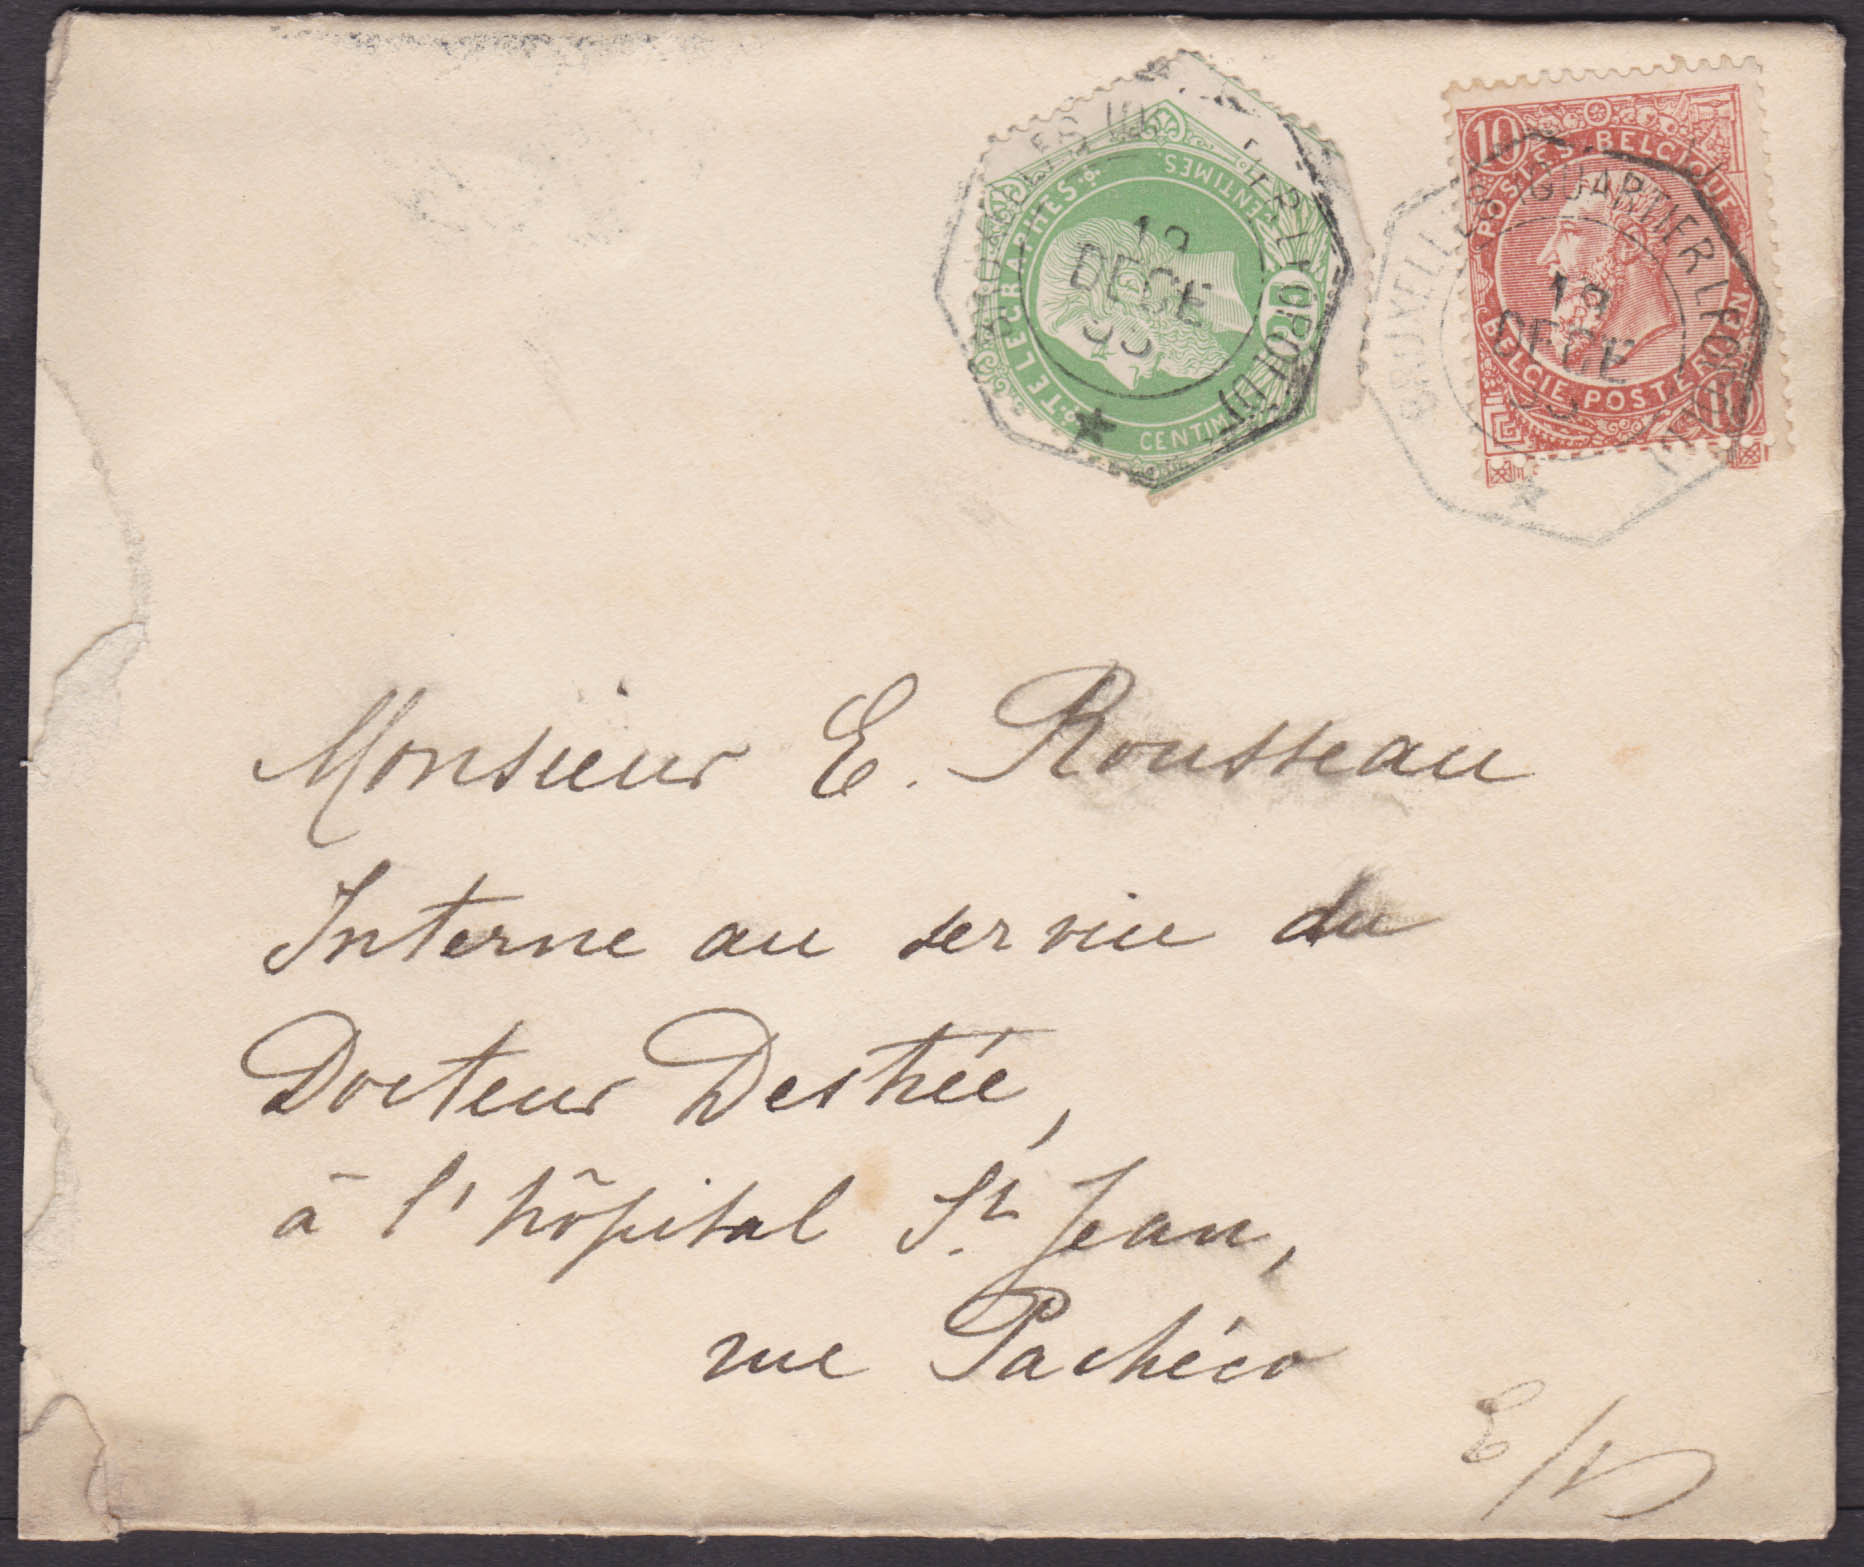 TELEGRAPHES
CENTIMES.
CENTIM
19
DECE
10
POSTES BELGIQUE
BELGIE POSTERIJEN
BRUXELLES (QUARTIER LEOPOLD)
19
DECE
Monsieur E. Rousseau
Interne au service du
Docteur Destrée,
à l'hôpital St. Jean,
rue Pachéco
E/V